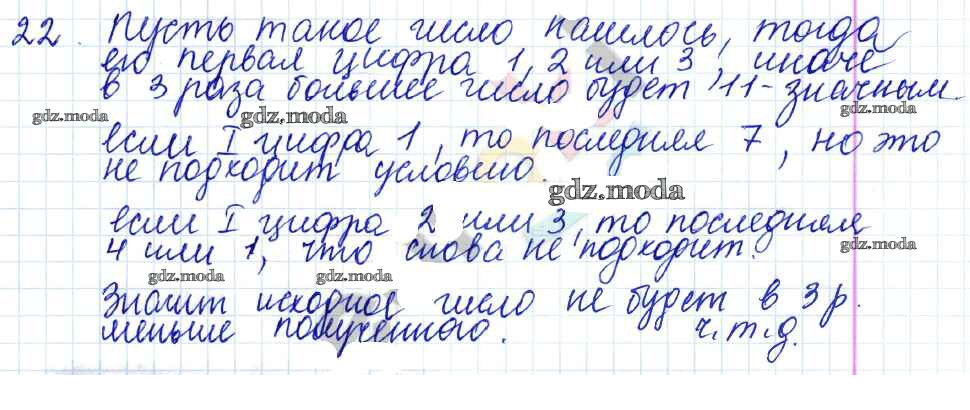 22. Пусть такое число нашлось, тогда
его первая цифра 1, 2 или 3, иначе
в 3 раза большее число будет 11-значным
gdz.moda gdz.moda gdz.moda
если I цифра 1, то последняя 7, но это
не подходит условию.
gdz.moda
если I цифра 2 или 3, то последняя
4 или 1, что снова не подходит.
gdz.moda gdz.moda gdz.moda
Значит исходное число не будет в 3 р.
меньше полученного. ч.т.д.